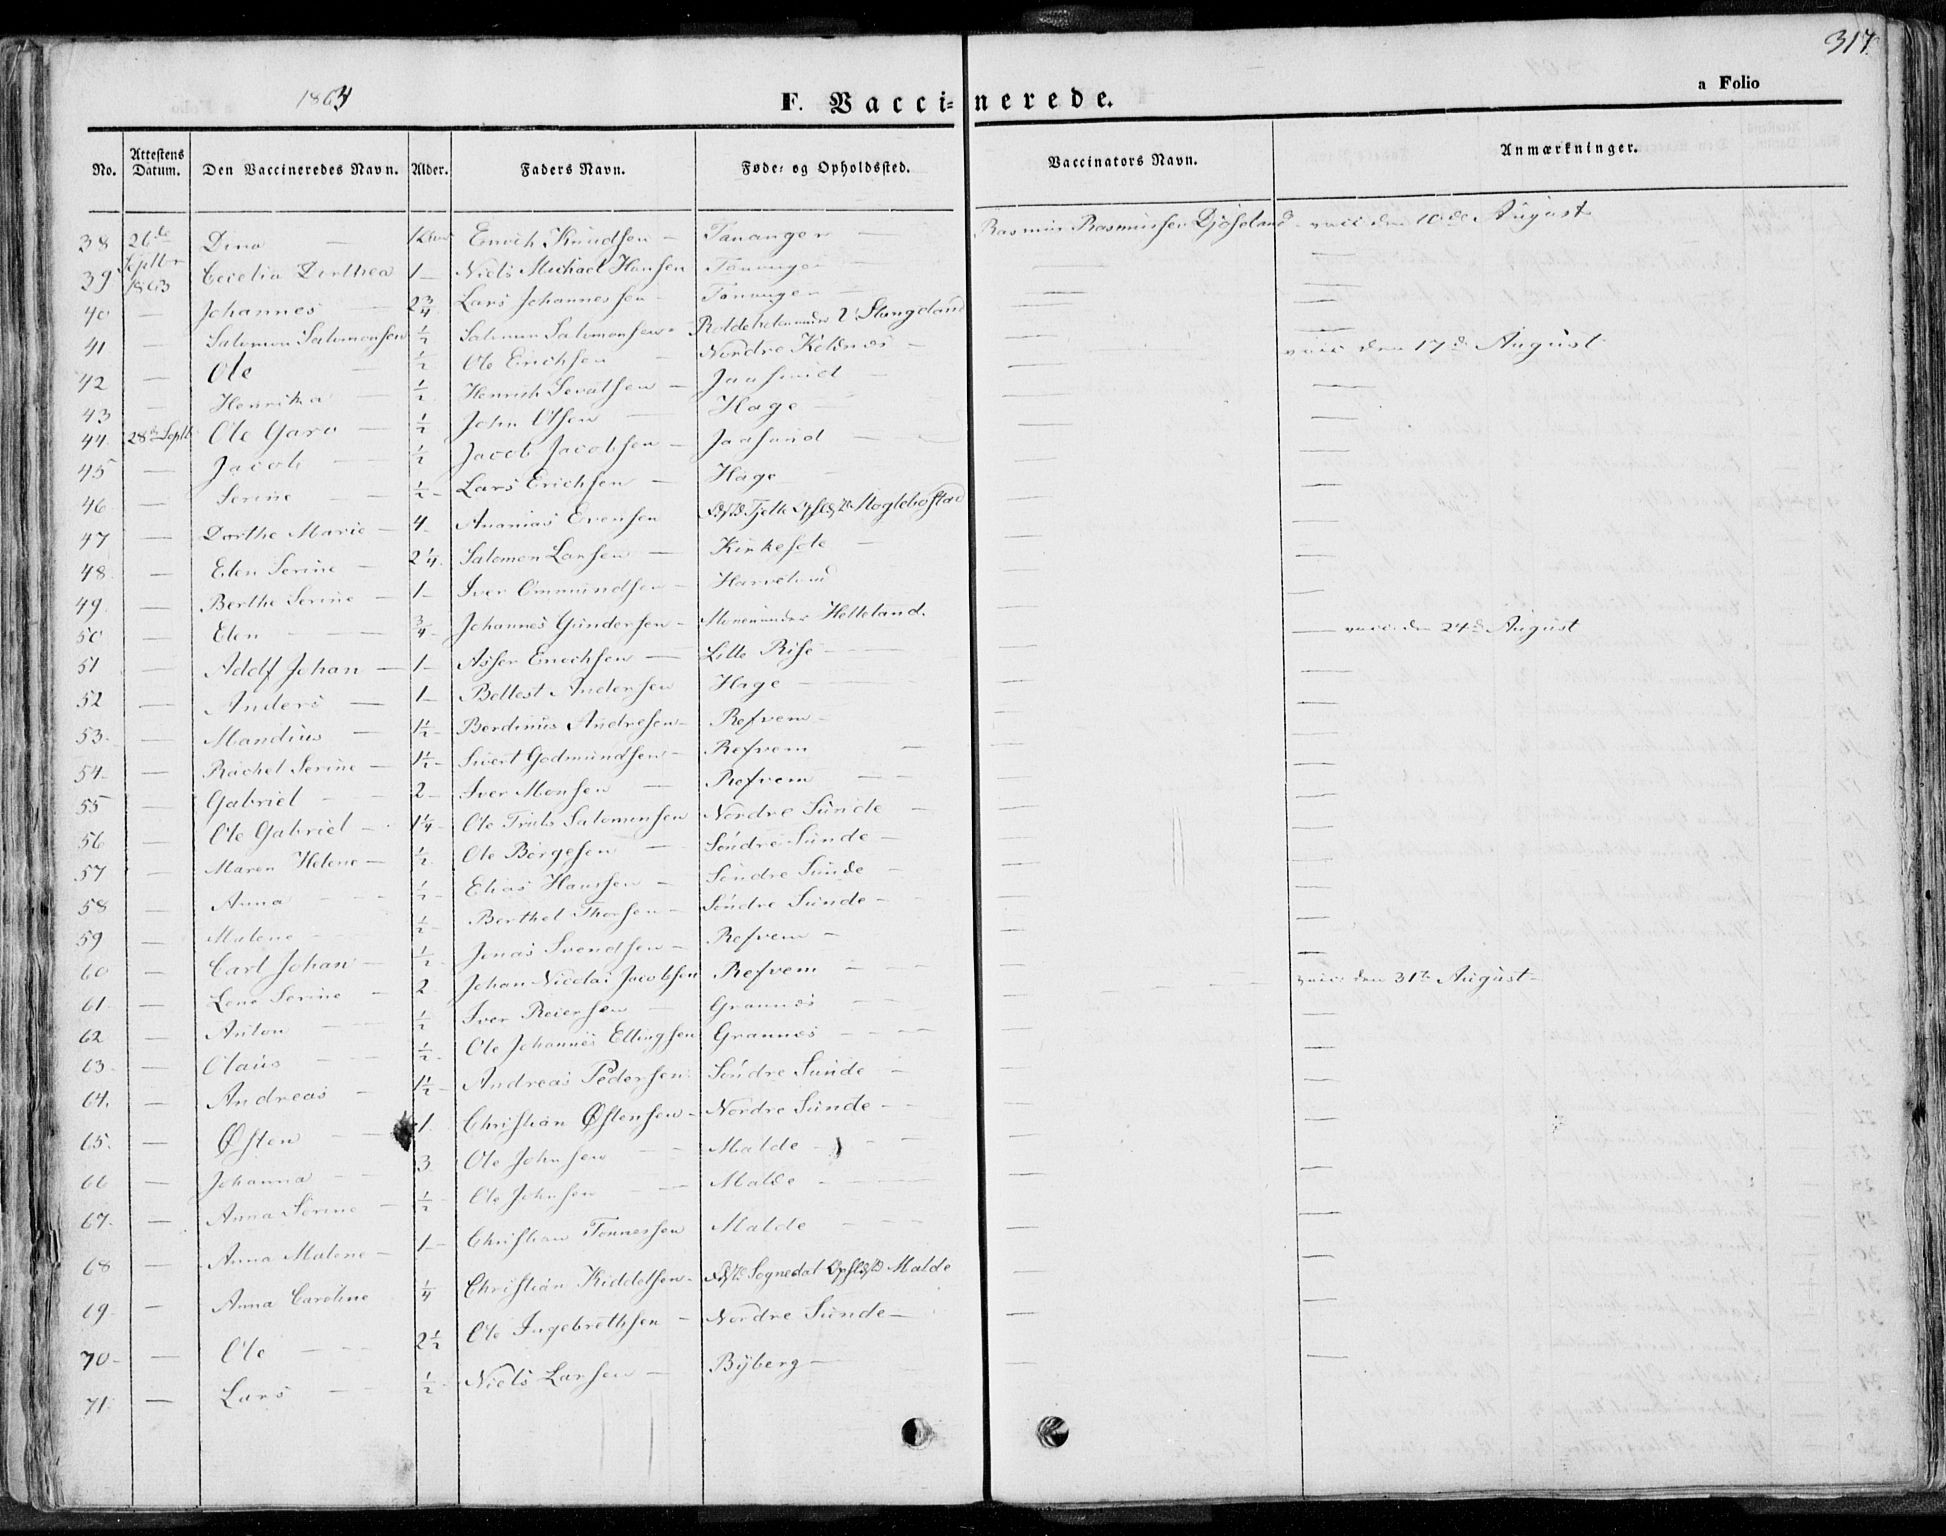 317.
1864
F. Vaccinerede.
a Folio
No. Attestens Datum. Den Vaccineredes Navn. Alder. Faders Navn. Føde- og Opholdssted. Vaccinators Navn. Anmærkninger.
38 26de Septbr 1863 Dina — Enoch Knudsen — Tananger — Rasmus Rasmussen vacc den 10de August
39 Cecelia Dorthea 1 — Niels Michael Hansen Tananger — —
40 — Johannes — 2 3/4 Lars Johannessen — Tananger — —
41 — Salomon Salomonsen 1/2 Salomon Salomonsen — Stangeland — —
42 — Ole 1/2 Ole Erichsen — Nordre Kolnes — vacc den 17de August
43 — Henrika — 1/2 Henrich — Jaasund — —
44. 28de Septb Ole Garo — 1/2 John Olsen — Hage — —
45 — Jacob — 1/2 Jacob Jacobsen — Jaasund — —
46 — Serine — 1/2 — Lars Erichsen — Hage — —
47 — Dorthe Marie — 4 — Ananias Evensen Tjelte — —
48 — Elen Serine — 2 1/4 Salomon Larsen — Kirkesole — —
49 — Berthe Serine — 1 — Iver Ommundsen — Harveland — —
50 — Elen — 3/4 — Johannes Gundersen — Helleland. — —
51 — Adolf Johan — 1 — Asser Enochsen — Lille Rise — vacc. den 24de August
52 — Anders — 1 — Bellest Andersen Hage — —
53. — Mandius — 1 1/2 — Berdinus Andresen — Refvem — —
54 — Rachel Serine — 1 1/2 — Sivert Godmundsen — Refvem — —
55 — Gabriel — 2 — Iver Monsen — Refvem — —
56 — Ole Gabriel — 1 1/4 — Ole Truls Salomonsen Nordre Sunde — —
57 — Maren Helene — 1/2 Ole Børgesen — Søndre Sunde — —
58 — Anna — 1/2 — Elias Hansen — Søndre Sunde — —
59 — Malene — 1/2 Berthel Thorsen — Søndre Sunde — —
60 — Carl Johan — 1/2 — Jonas Svendsen — Refvem — —
61. — Lene Serine — 2 — Johan Nicolai Jacobsen Refvem — vacc. den 31te August
62 — Anton — 1/2 Iver Reiersen — Grannes — —
63 — Olaus — 1/2 — Ole Johannes Ellingsen Grannes — —
64. — Andreas — 1 1/2 — Andreas Pedersen Søndre Sunde — —
65. — Østen — 1 Christian Østensen — Nordre Sunde — —
66 — Johanna — 3 Ole Johnsen — Malde — —
67. — Anna Serine — 1/2 — Ole Johnsen — Malde — —
68 — Anna Malene — 1 — Christian Tønnessen Malde — —
69. — Anna Caroline 1/4 Christian Kiddelsen — Sognedal Malde —
70 — — Ole — 2 1/2 Ole Ingebrethsen — Nordre Sunde — —
71. — Lars — 1/2 — Niels Larsen — Byberg — —